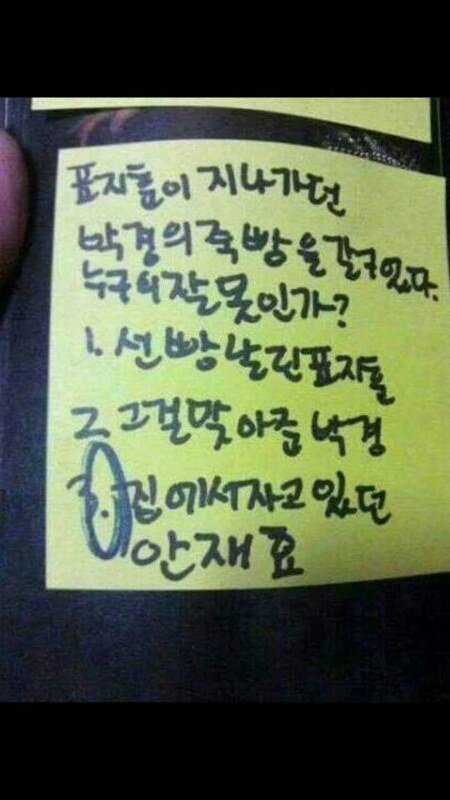 표지훈이 지나가던
박경의 죽빵을 갈구있다.
누구의잘못인가?
1. 선빵날린표지훈
2 그걸맞아준박경
3. 집에서자고있던
안재효